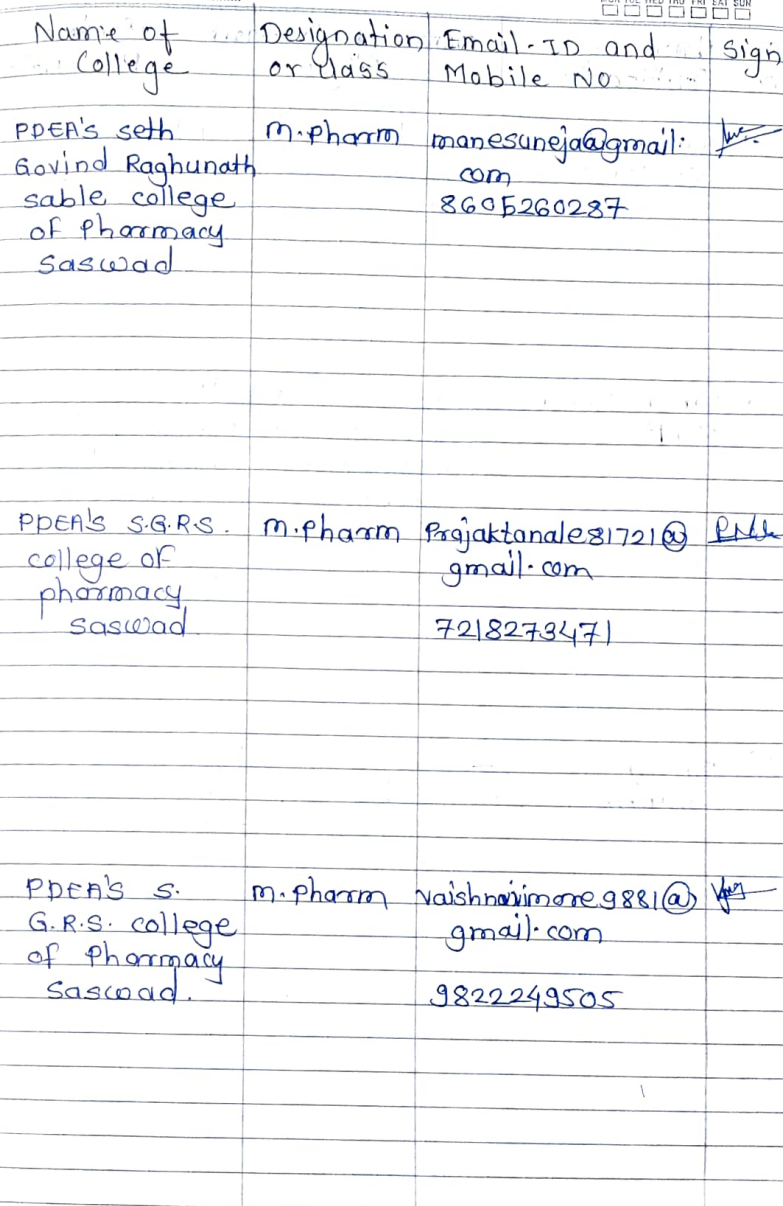 MON TUE WED THU FRI SAT SUN
Name of College
Designation or class
Email-ID and Mobile No
Sign
PDEA's seth Govind Raghunath sable college of pharmacy saswad
M.pharm
manesuneja@gmail.com
8605260287
PDEA's S.G.R.S. college of pharmacy saswad
M.pharm
Prajaktanale81721@gmail.com
7218273471
PDEA's S. G.R.S. college of Pharmacy Saswad.
M.pharm
vaishnavimore9881@gmail.com
9822249505